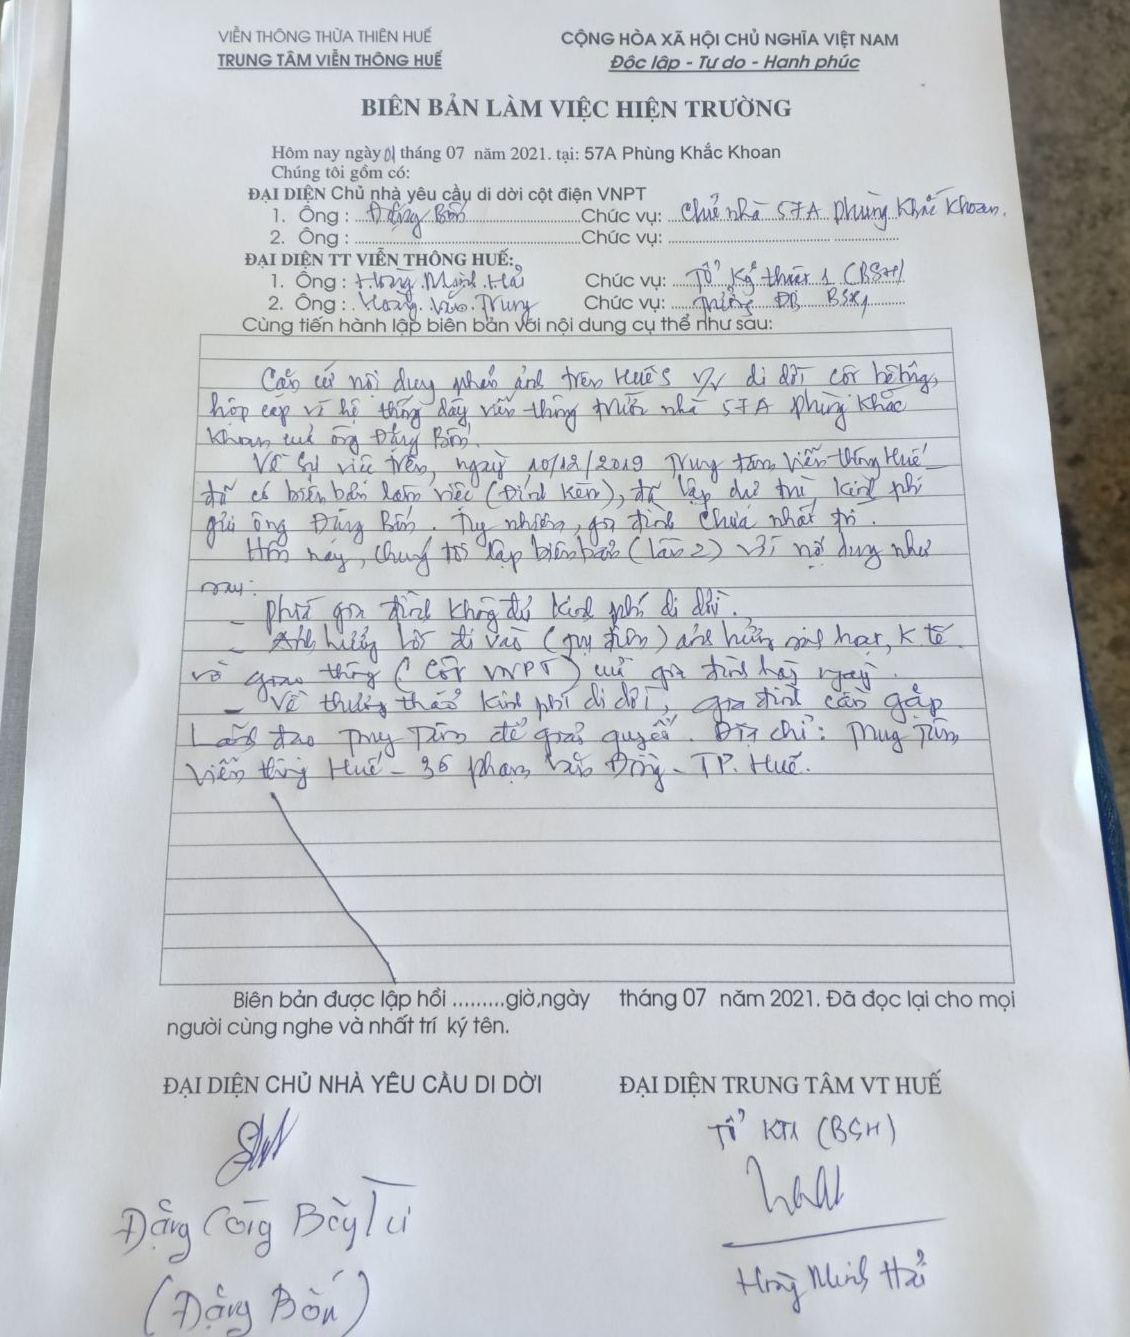 VIỄN THÔNG THỪA THIÊN HUẾ
TRUNG TÂM VIỄN THÔNG HUẾ
CỘNG HÒA XÃ HỘI CHỦ NGHĨA VIỆT NAM
Độc lập - Tự do - Hạnh phúc
BIÊN BẢN LÀM VIỆC HIỆN TRƯỜNG
Hôm nay ngày 01 tháng 07 năm 2021. tại: 57A Phùng Khắc Khoan
Chúng tôi gồm có:
ĐẠI DIỆN Chủ nhà yêu cầu di dời cột điện VNPT
1. Ông : Đặng Bốn Chức vụ: Chủ nhà 57A Phùng Khắc Khoan.
2. Ông : Chức vụ:
ĐẠI DIỆN TT VIỄN THÔNG HUẾ:
1. Ông : Hoàng Minh Hải Chức vụ: Tổ Kỹ thuật 1 (BSH)
2. Ông : Hoàng Văn Trung Chức vụ: ĐB
Cùng tiến hành lập biên bản với nội dung cụ thể như sau:
Căn cứ nội dung phản ánh trên HuếS V/v di dời cột bê tông,
hộp cáp và hệ thống dây viễn thông trước nhà 57A Phùng Khắc
Khoan của ông Đặng Bốn.
Về sự việc trên, ngày 10/12/2019 Trung tâm Viễn thông Huế
đã có biên bản làm việc (Đính kèm), đã lập dự trù kinh phí
gửi ông Đặng Bốn. Tuy nhiên, gia đình chưa nhất trí.
Hôm nay, chúng tôi lập biên bản (lần 2) với nội dung như
sau:
- Phía gia đình không đủ kinh phí di dời.
- Ảnh hưởng lối đi vào ảnh hưởng sinh hoạt, K tế
và giao thông (cột VNPT) của gia đình hàng ngày.
- Về thương thảo kinh phí di dời, gia đình cần gặp
Lãnh đạo Trung Tâm để giải quyết. Địa chỉ: Trung Tâm
Viễn thông Huế - 36 Phạm Văn Đồng - TP. Huế.
Biên bản được lập hồi .........giờ,ngày tháng 07 năm 2021. Đã đọc lại cho mọi
người cùng nghe và nhất trí ký tên.
ĐẠI DIỆN CHỦ NHÀ YÊU CẦU DI DỜI
ĐẠI DIỆN TRUNG TÂM VT HUẾ
Tổ KT1 (BSH)
Đặng Công Bảy Tư
(Đặng Bốn)
Hoàng Minh Hải